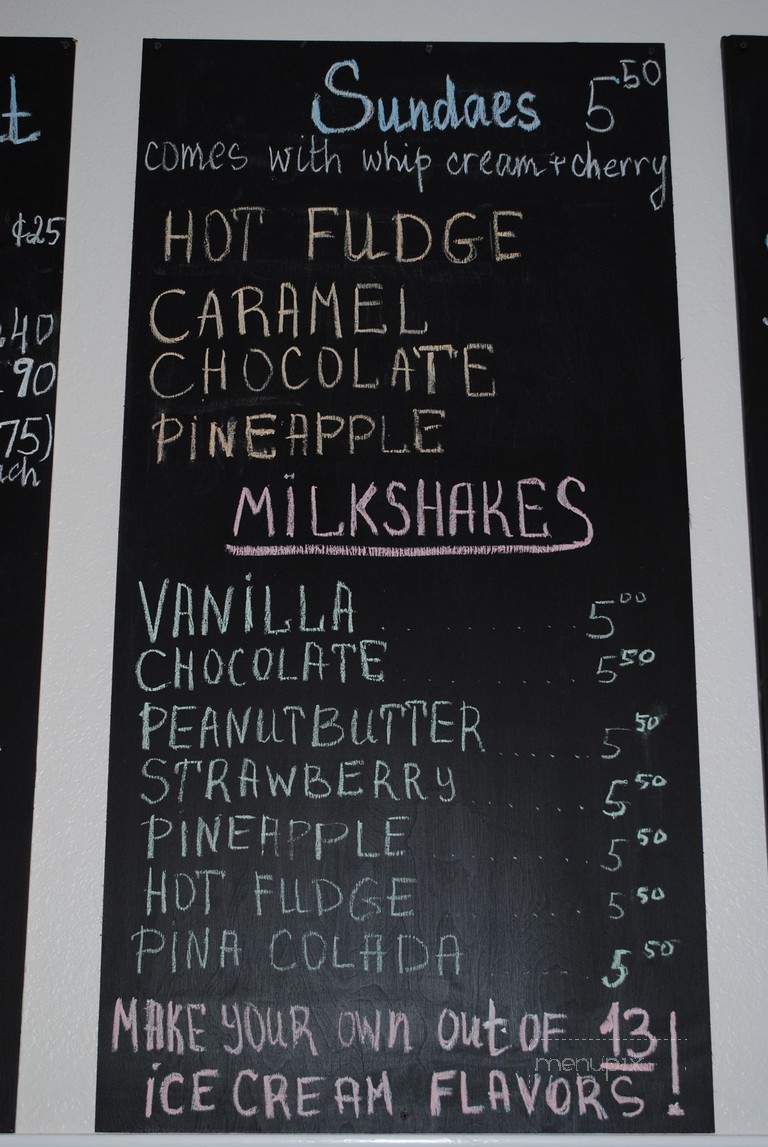 Sundaes 5 50
comes with whip cream + cherry
HOT FUDGE
CARAMEL
CHOCOLATE
PiNEAPPLE
MiLKSHAKES
VANiLLA . . . . . . . 5 00
CHOCOLATE . . . . . . . 5 50
PEANUTBUTTER . . . . . . . 5 50
STRAWBERRY . . . . . . . 5 50
PINEAPPLE . . . . . . . 5 50
HOT FUDGE . . . . . . . 5 50
PINA COLADA . . . . . . . 5 50
MAKE YOUR OWN Out OF 13!
iCE CREAM FLAVORS
menupix
t
¢.25
40
90
75)
ach